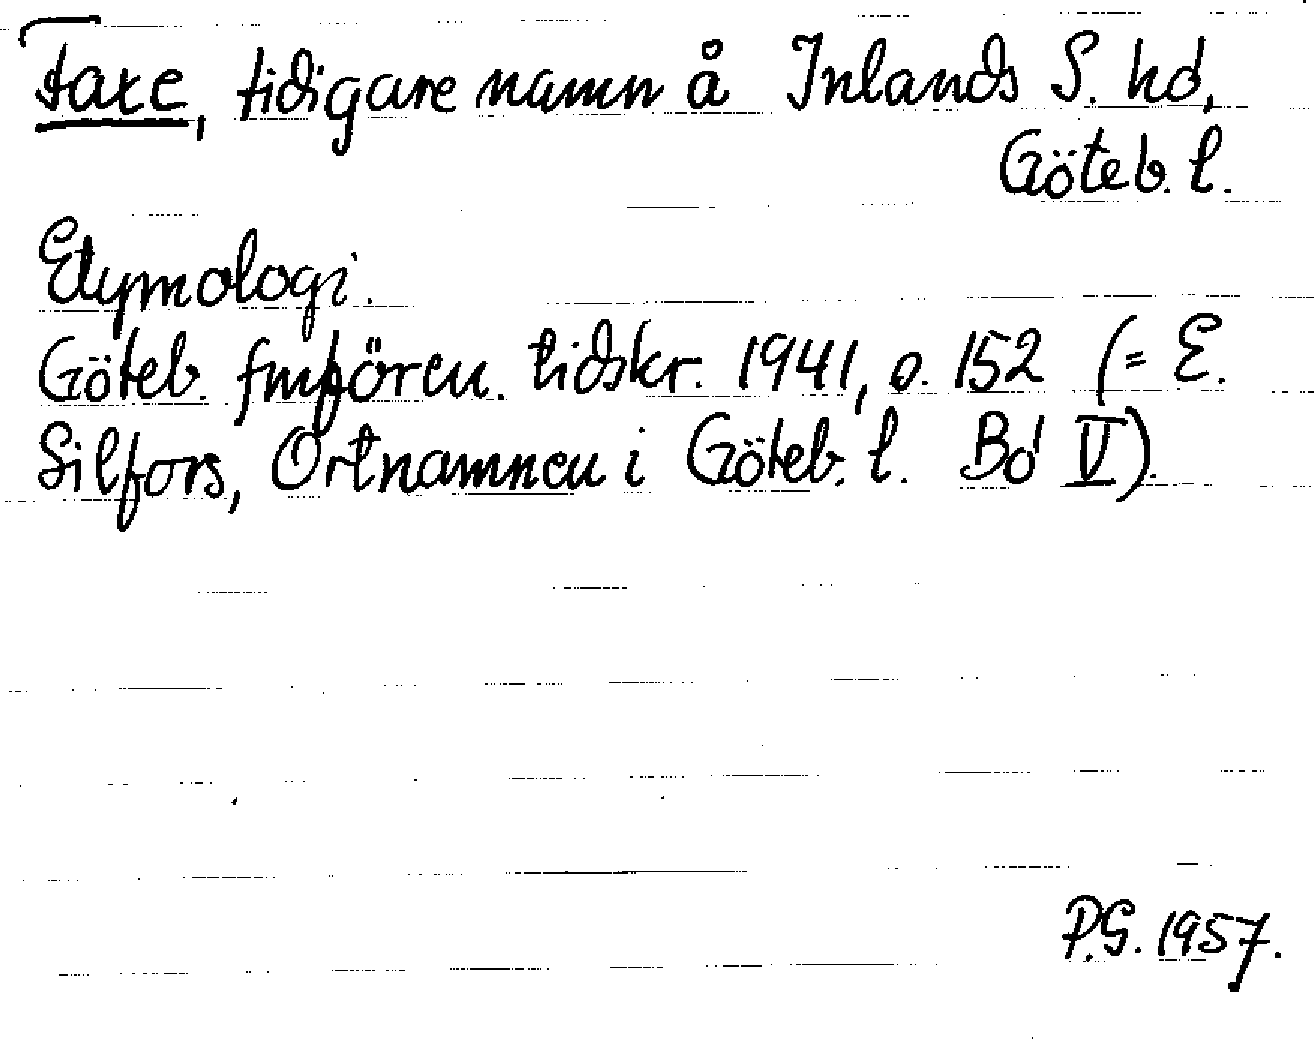 Taxe, tidigare namn å Inlands S. hd,
Göteb. l.
Etymologi.
Göteb. fmfören. tidskr. 1941, s. 152 (= E.
Silfors, Ortnamnen i Göteb. l. Bd V).
P.G. 1957.